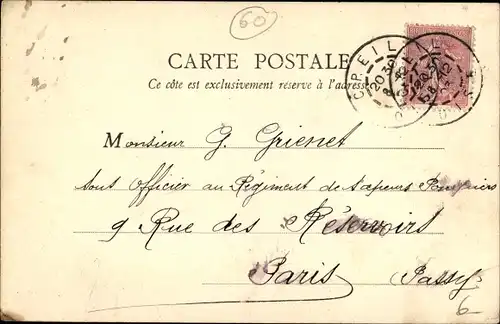 60
CARTE POSTALE
Ce côté est exclusivement reserve à l'adresse
CREIL
20 30
Monsieur G. Grienet
sous Officier au Régiment de Sapeurs Pompiers
9 Rue des Réservoirs
Paris Passy
6